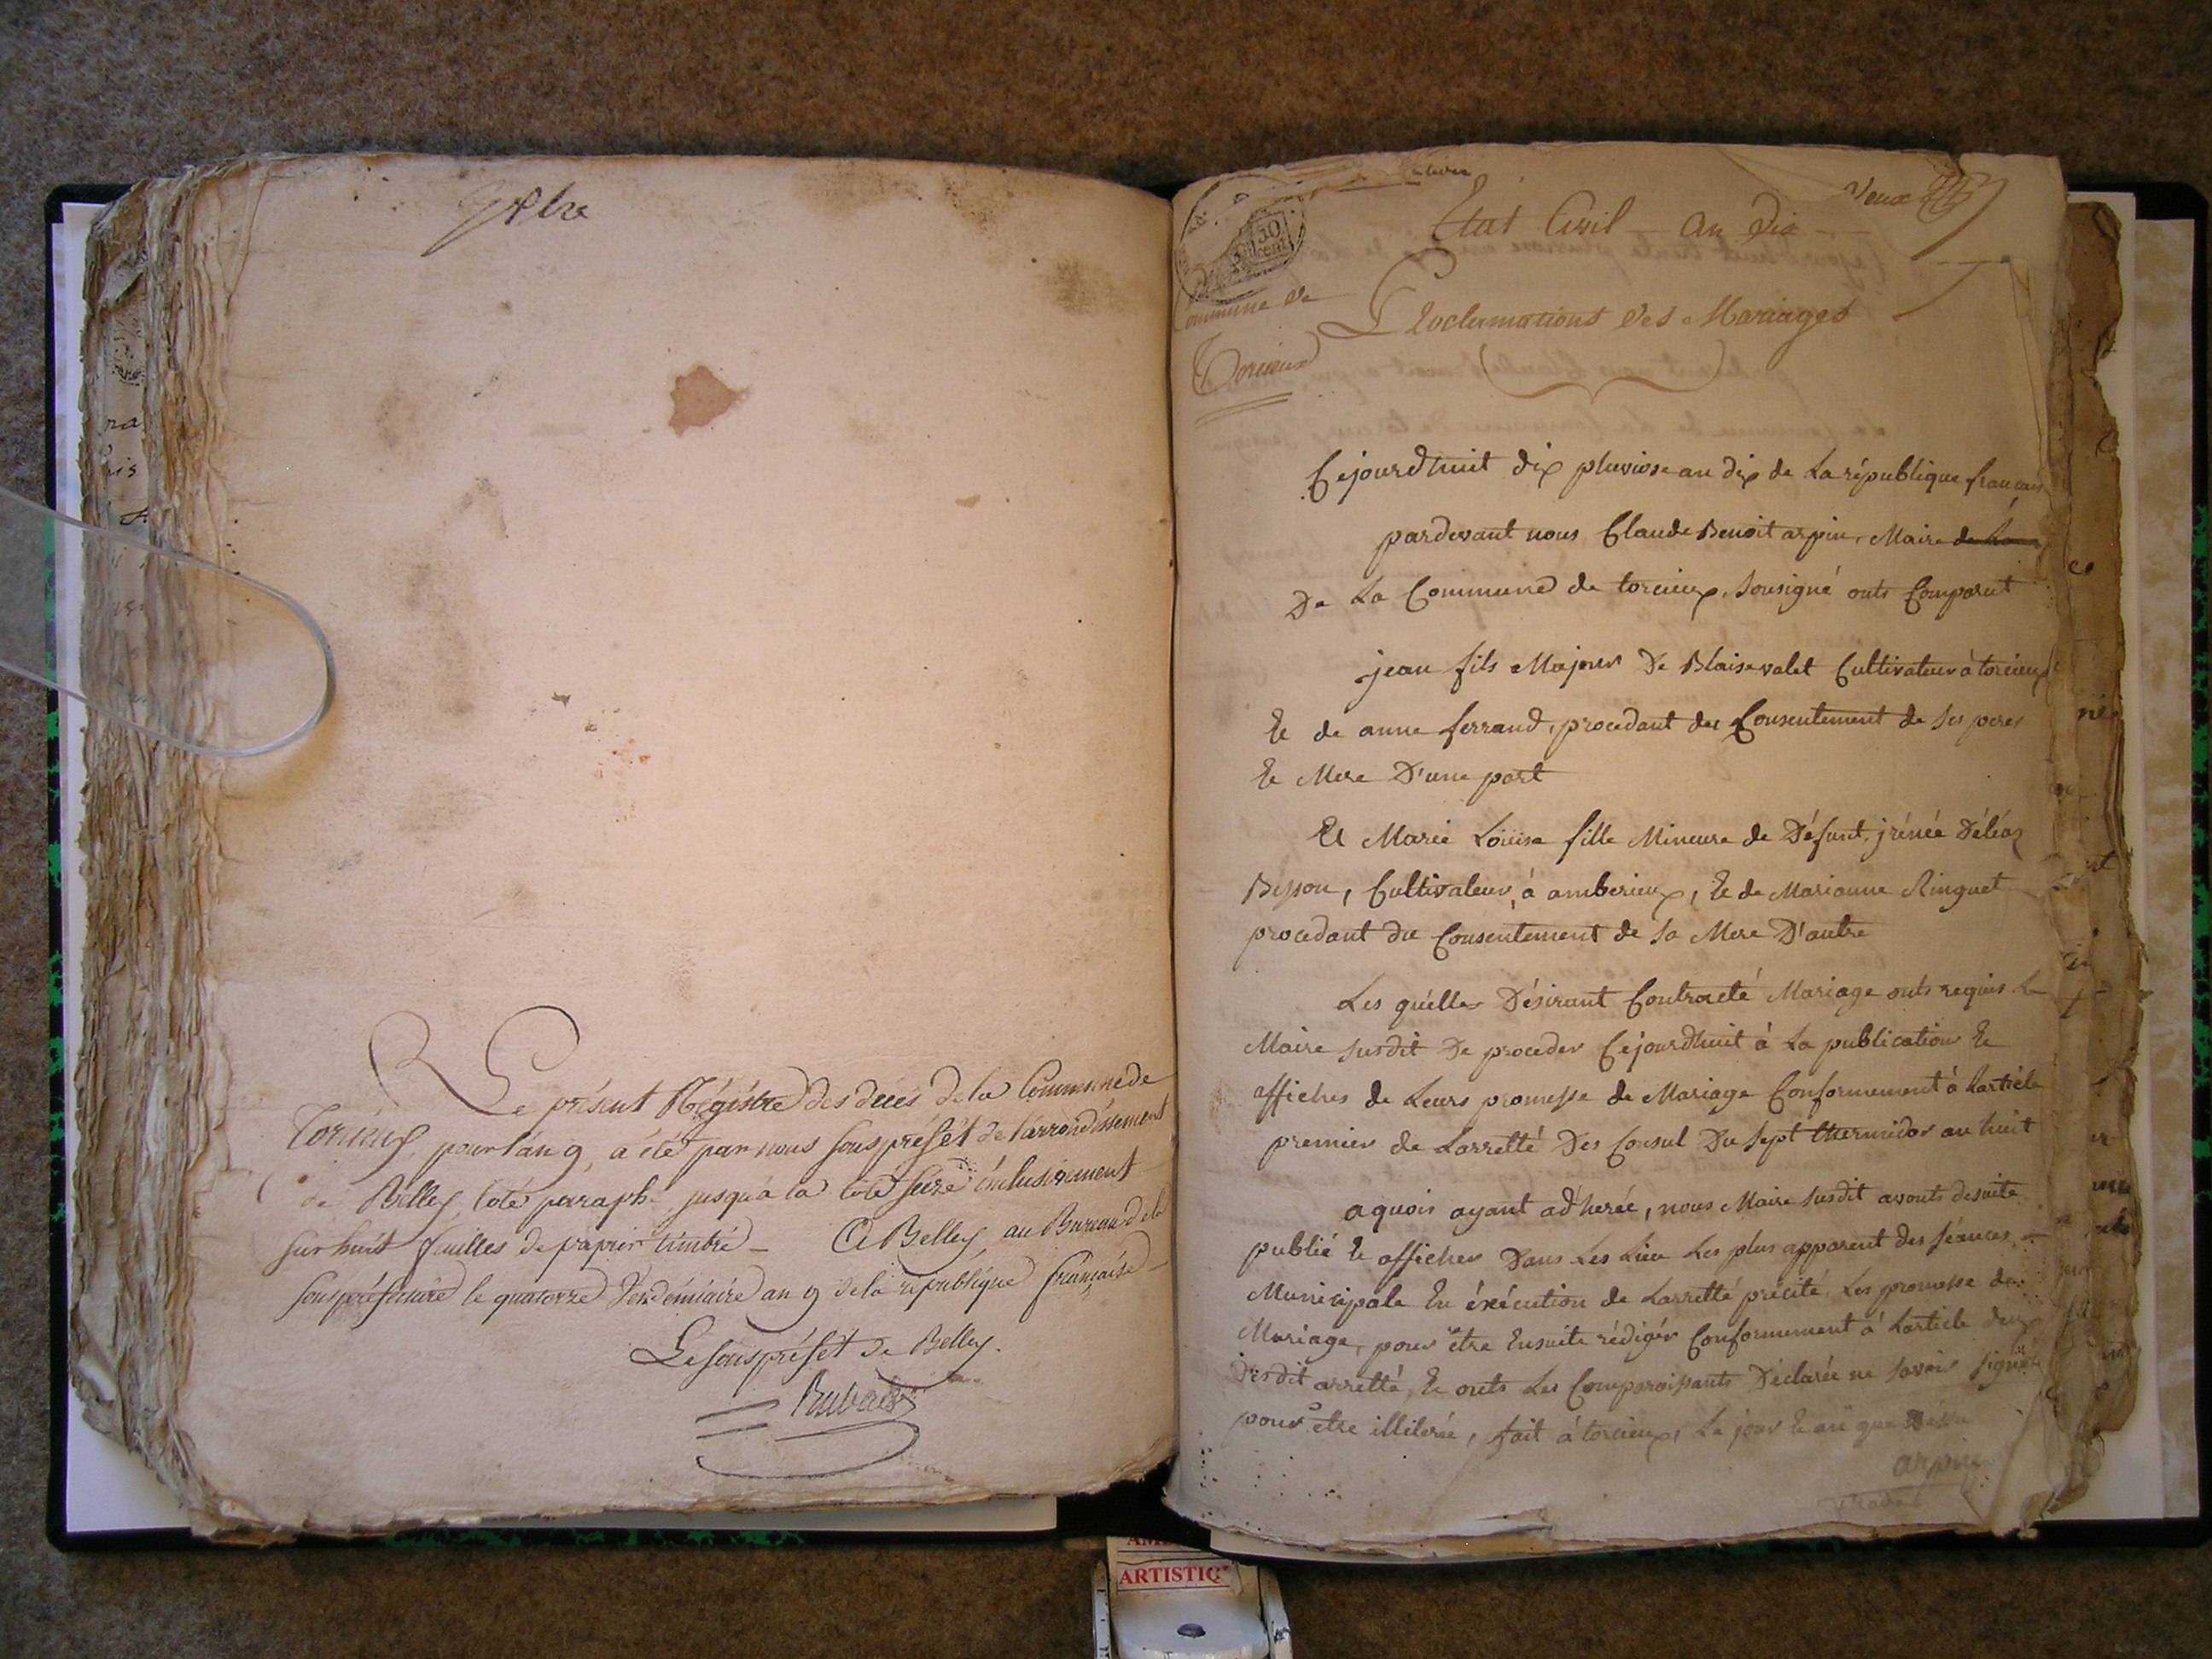 Le présent Régistre des décés de la Commune de
Torcieux, pour l'an 9, a été par nous sous préfét de l'arrondissement
de Belley, coté paraphé, jusqu'à la cote seize inclusivement
sur huit feuilles de papier timbré — A Belley au Bureau de la
souspréfecture le quatorze Vendémiaire an 9 de la république française
Le souspréfet de Belley.
Etat Civil — an Dix —
Commune de
Torcieux
Proclamations des Mariages
Cejourdhuit dix pluviose an dix de La république français
pardevant nous Claude Benoit arpin, Maire de La
De La Commune de torcieux, Sousigné onts Comparut
jean fils Majeur De Blaise valet Cultivateur à torcieux
Et de anne ferrand, procedant du Consentement de ses peres
Et Mere D'une part
Et Marie Loüise fille Mineure de Défunt, jrénée Déléaz
Besson, Cultivateur, à amberieux, Et de Marianne Ringuet
procedant du Consentement de sa Mere D'autre
Les quélles Désirant Contracté Mariage onts requis Le
Maire susdit De proceder Cejourdhuit à La publication Et
affiches de Leurs promesse de Mariage Conformement à Lartiéle
premier de Larretté Des Consul Du sept thermidor an huit
aquois ayant adherée, nous Maire susdit avonts desuite
publié Et afficher Dans Les Lieu Les plus apparent des séances
Municipale En éxécution de Larretté précité, Les promesse de
Mariage, pour être Ensuite rédigér Conformement à Larticle deux
Susdit arretté, Et onts Les Comparoissants Déclarée ne savoir signer
pour être illiterée, fait à torcieux, Le jour Et an que Dessu
arpin